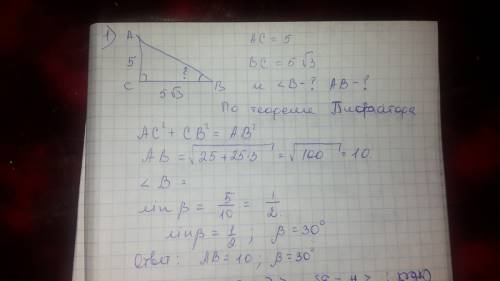 1) A
AC = 5
5
BC = 5√3
?
C
B
и ∠B - ? AB - ?
5√3
По теореме Пифагора
AC² + CB² = AB²
AB = √25+25·3 = √100 = 10
∠B =
sin β = 5/10 = 1/2
sin β = 1/2 ; β = 30°
Ответ: AB = 10 ; β = 30°